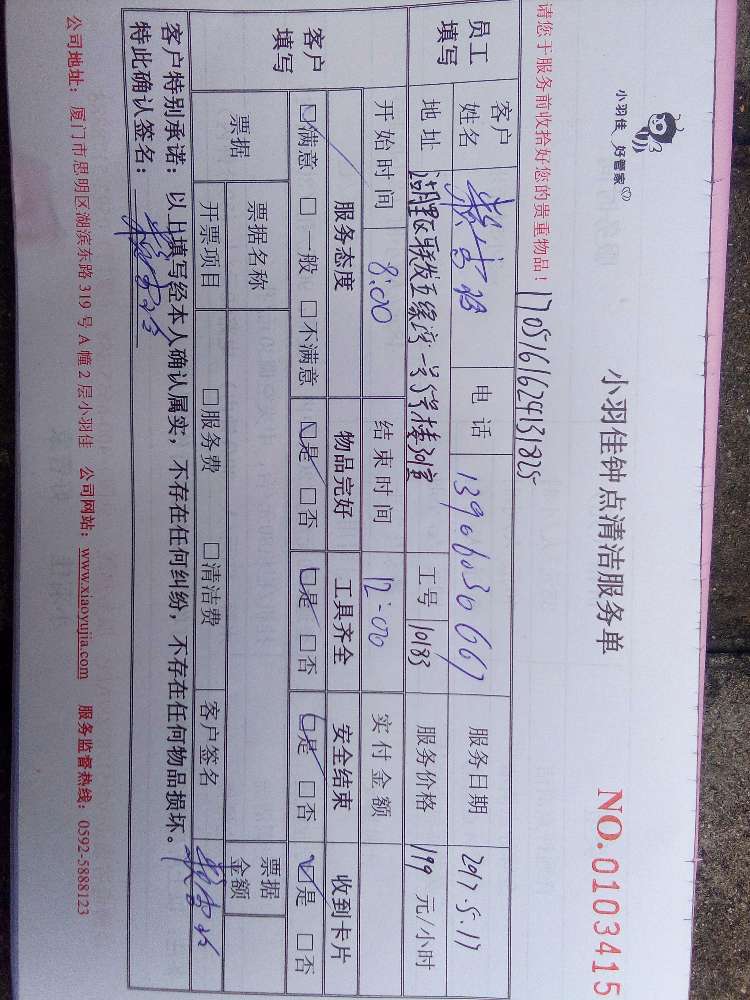 小羽佳 好管家
小羽佳钟点清洁服务单
NO.0103415
请您于服务前收拾好您的贵重物品！
170516162413 1825
员工填写
客户姓名 电话 13906030667 服务日期 2017.5.17
地址 湖里区联发五缘湾一号 工号 10183 服务价格 199 元/小时
客户填写
开始时间 8:00 结束时间 12:00 实付金额
服务态度 物品完好 工具齐全 安全结束 收到卡片
☑满意 □一般 □不满意 ☑是 □否 ☑是 □否 ☑是 □否 ☑是 □否
票据 票据名称 票据金额
开票项目 □服务费 □清洁费 客户签名
客户特别承诺：以上填写经本人确认属实，不存在任何纠纷，不存在任何物品损坏。
特此确认签名：
公司地址：厦门市思明区湖滨东路 319 号 A 幢 2 层小羽佳 公司网站：www.xiaoyujia.com 服务监督热线：0592-5888123